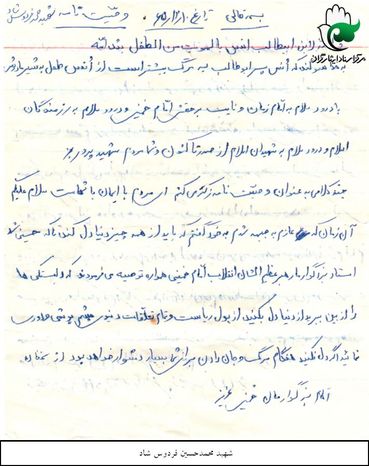 مرکز اسناد ایثارگران
بسمه تعالی تاریخ وصیت نامه شهید
ابن ابیطالب انس بالموت من الطفل بثدی امه
به خدا سوگند که انس پسر ابوطالب به مرگ بیشتر است از انس طفل به شیر مادرش
با درود و سلام به امام زمان و نایب برحقش امام خمینی و درود و سلام به رزمندگان
اسلام و درود و سلام به شهیدان اسلام از صدر تا کنون و شما مردم شهید پرور
چند کلامی به عنوان وصیت نامه ذکر می کنم ای مردم با ایمان با شهامت سلام علیکم
آن زمان که عازم به جبهه شدم به خود گفتم که باید از همه چیز دنیا دل کند که خمینی
استاد بزرگوار رهبر عظیم الشان انقلاب امام خمینی همواره توصیه می فرمودند که دلبستگی ها
را از بین ببرید از دنیا دل بکنید از پول ریاست و تمام تعلقات دنیوی چشم پوشی
نمائید اگر دل نکنید هنگام مرگ و جان دادن برای شما بسیار دشوار خواهد بود از سخنان
امام بزرگوارمان خمینی عزیز
شهید محمدحسین فردوس شاد